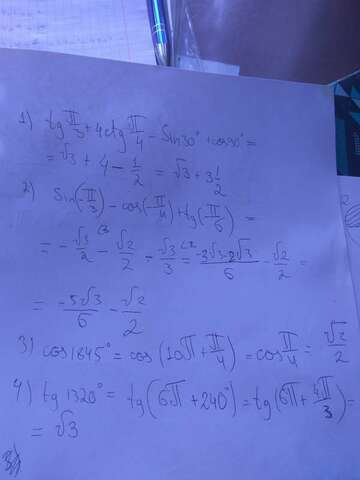 1) tg π/3 + 4ctg π/4 - sin30° + cos90° =
= √3 + 4 - 1/2 = √3 + 3 1/2
2) sin(-π/3) - cos(-π/4) + tg(-π/6) =
= -√3/2 - √2/2 - √3/3 = -3√3-2√3/6 - √2/2 =
= -5√3/6 - √2/2
3) cos1845° = cos(10π + π/4) = cos π/4 = √2/2
4) tg1320° = tg(6π + 240°) = tg(6π + 4π/3) =
= √3